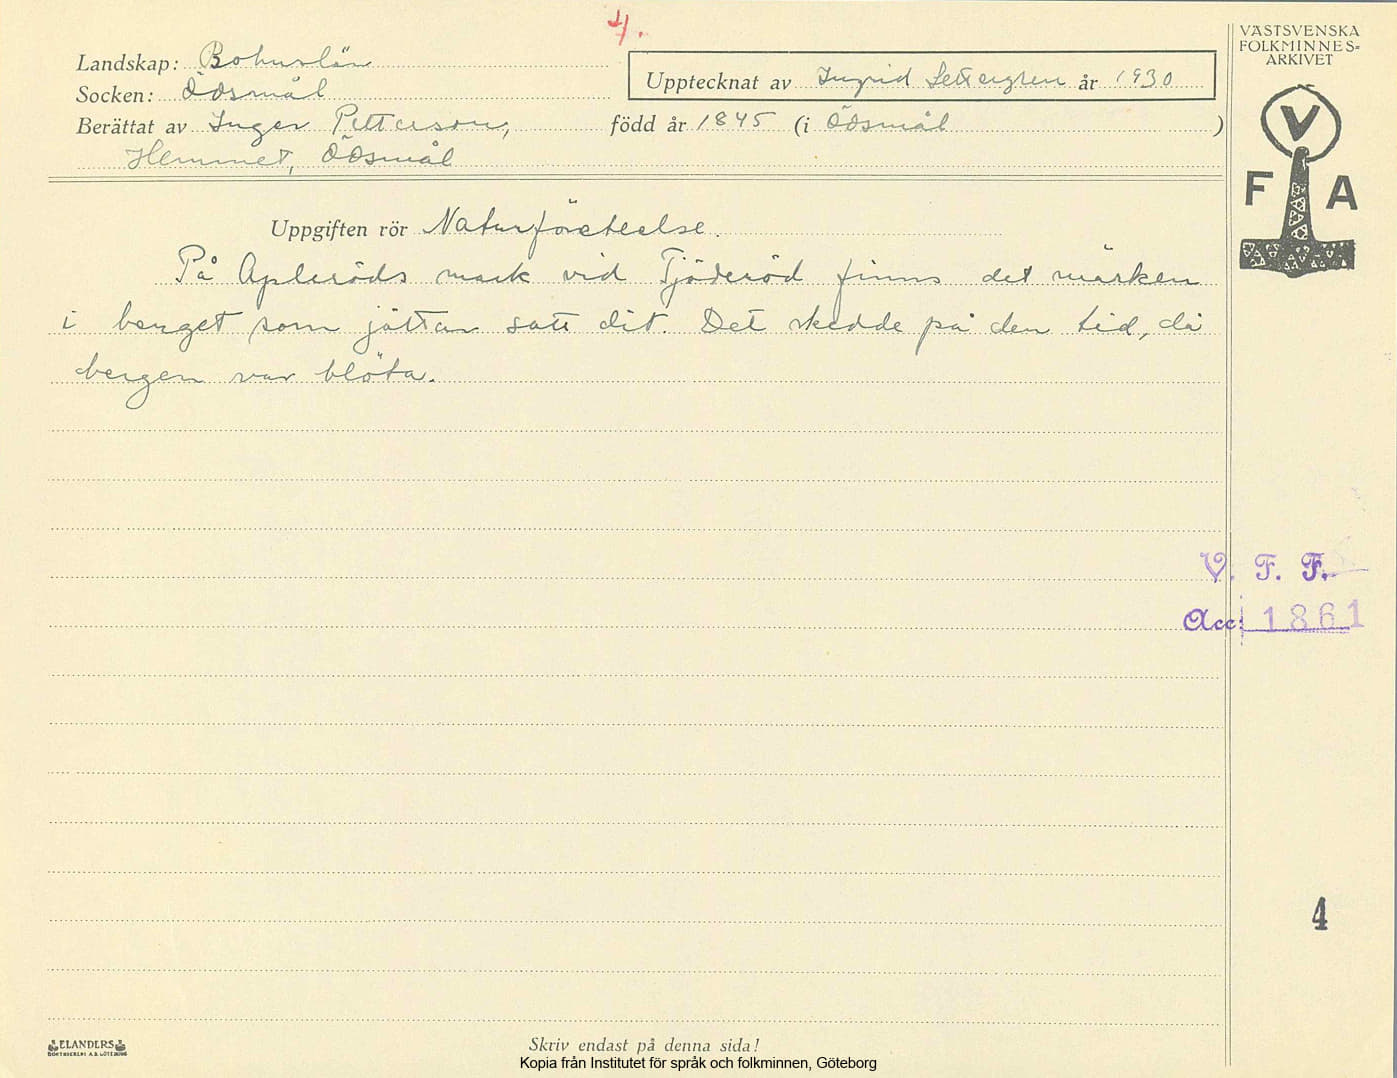 4.
VÄSTSVENSKA
FOLKMINNES=
ARKIVET
Landskap: Bohuslän
Upptecknat av Ingrid Settergren år 1930
Socken: Ödsmål
Berättat av Inger Petterson, född år 1845 (i Ödsmål )
Hemmet, Ödsmål
V
F A
Uppgiften rör Naturföreteelse.
På Apleröds mark vid Tjöderöd finns det märken
i berget som jättar satt dit. Det skedde på den tid, då
bergen var blöta.
V. F. F.
Acc: 1861
4
ELANDERS
BOKTRYCKERI A.B. GÖTEBORG
Skriv endast på denna sida!
Kopia från Institutet för språk och folkminnen, Göteborg